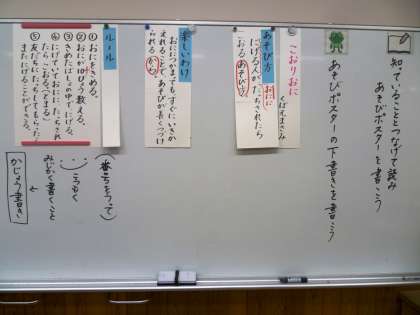 知っていることとつなげて読み
あそびポスターを書こう
あそびポスターの下書きを書こう
こおりおに
くばえまさみ
あそび方
おにに
にげる人が、たっちされたら
こおるあそび方
楽しいわけ
おにつかまってもすぐにいきか
えれることで、あそびが長くつづけ
られるから。
ルール
①おにをきめる。
②おにが10びょう数える。
③きめたはしの中でにげる。
④にげていておにに、たっちされ
たらこおる。(とまる)
⑤友だちにたっちしてもらったら
またにげることができる。
(番号をつって)
こうもく
みじかく書くこと
かじょう書き